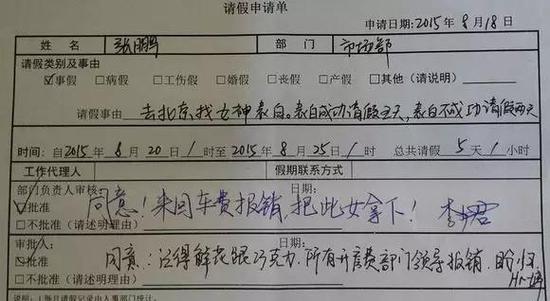 请假申请单
申请日期:2015年8月18日
姓名 张鹏 部门 市场部
请假类别及事由
☑事假 □病假 □工伤假 □婚假 □丧假 □产假 □其他(请说明)
请假事由 去北京找女神表白。表白成功请假五天,表白不成功请假两天
时间:自2015年8月20日1时至2015年8月25日1时 总共请假5天1小时
工作代理人 假期联系方式
部门负责人审核: 日期:
☑批准 同意!来回车费报销,把此女拿下!
□不批准(请述明理由)
审批人: 日期:
☑批准 同意:记得鲜花跟巧克力.所有开房费部门领导报销.盼归
□不批准(请述明理由)